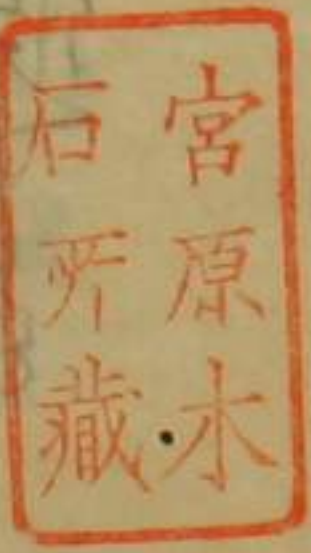 宮原木
石所藏